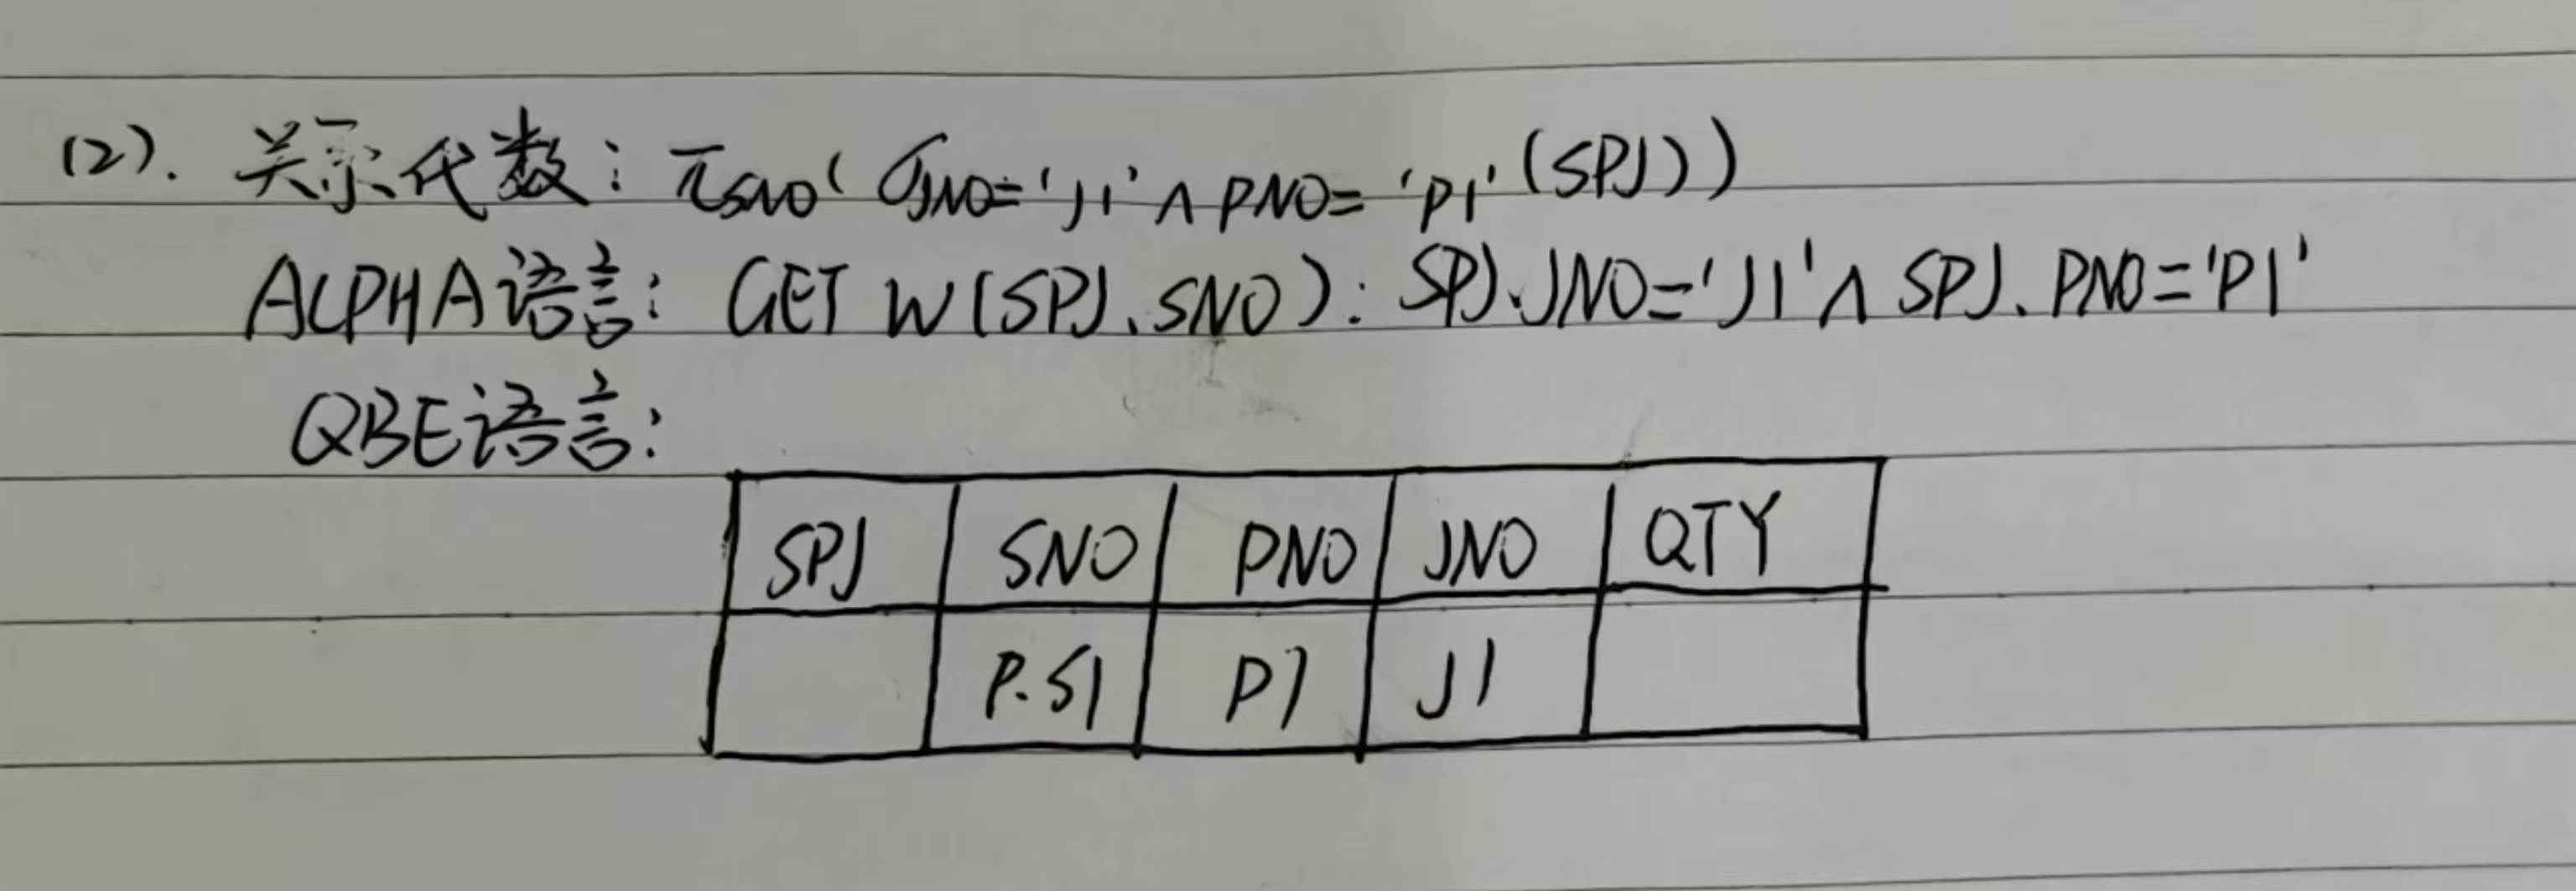 (2). 关系代数：πSNO(σJNO='J1'∧PNO='P1'(SPJ))
ALPHA语言：GET W(SPJ.SNO)：SPJ.JNO='J1'∧SPJ.PNO='P1'
QBE语言：
SPJ SNO PNO JNO QTY
P.S1 P1 J1